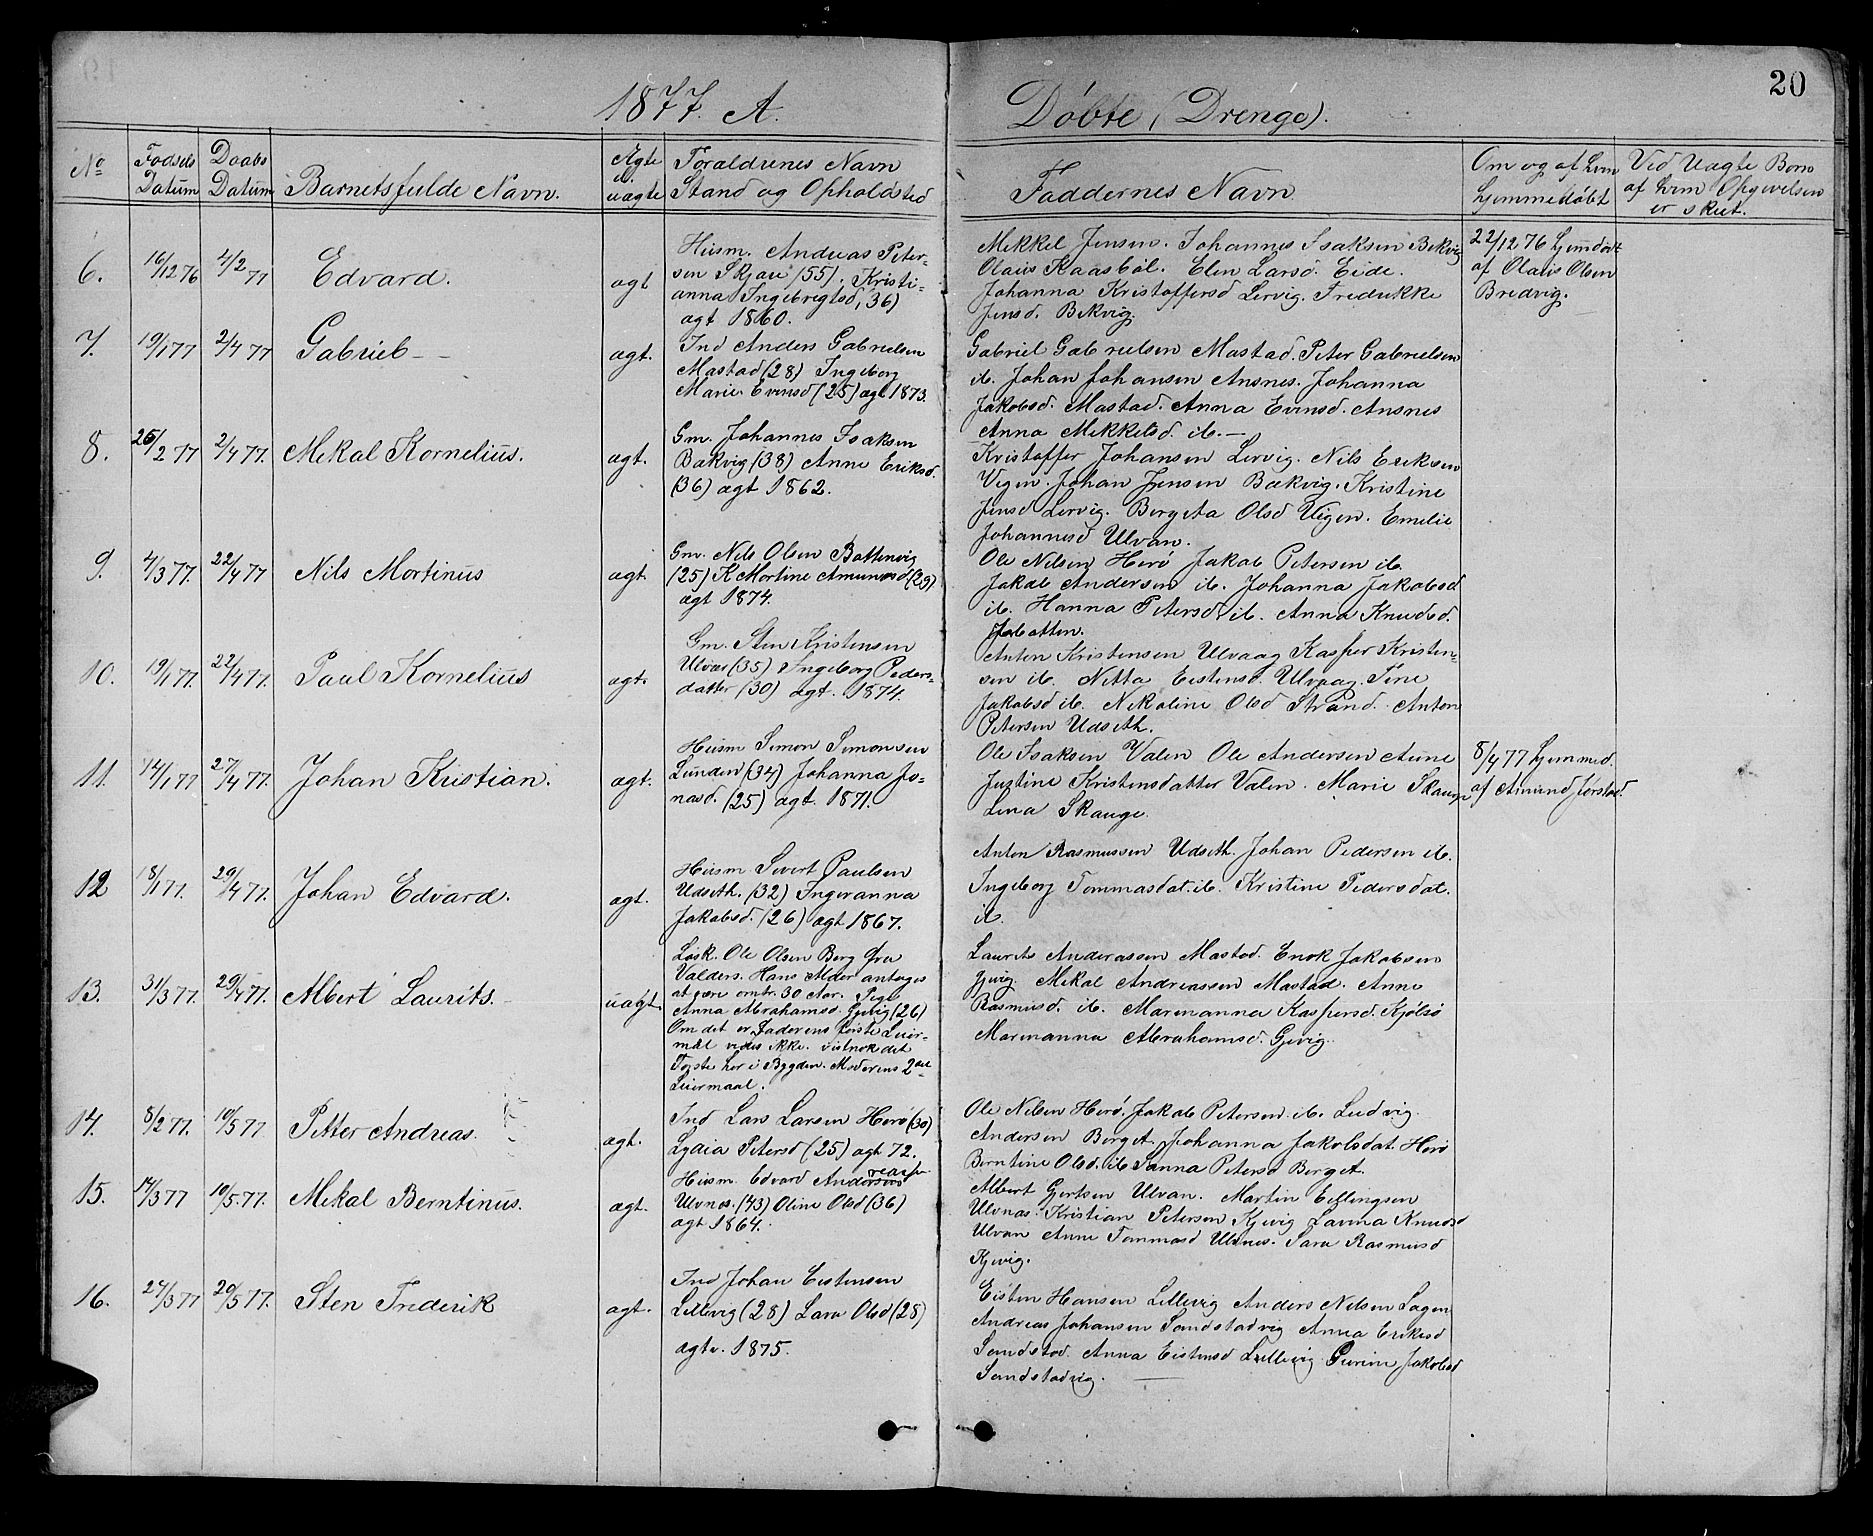 20
1877. A. Döbte (Drenge).
No Fodsels Datum Daabs Datum Barnets fulde Navn. Ægte el. uægte Foraldrenes Navn Stand og Opholdsted Faddernes Navn Om og af hvem hjemmedöbt Ved Uagte Born af hvem Opgivelsen er skeet.
6. 16/12 76 4/2 77 Edvard. agt
Huusm. Andreas Peter-
sen Skjæri (55), Kristi-
anna Ingebrigtsd, 36)
agt 1860.
Mekkel Jensen. Johannes Isaksen Bekvig
Olaus Kaasböl. Elen Larsd. Eide.
Johanna Kristoffersd Lervig. Fredrikke
Jensd. Bekvig.
22/12 76 hjemdöbt
af Olaus Olsen
Bredvig.
7. 19/1 77 2/4 77 Gabrieb agt.
Ind Anders Gabrielsen
Mastad (28) Ingeborg
Marie Evensd (25) agt 1873.
Gabriel Gabrielsen Mastad. Peter Gabrielsen
ib. Johan Johansen Ansnes. Johanna
Jakobsd. Mastad. Anna Evensd. Ansnes
Anna Mekkelsd. ib.
8. 26/2 77 2/4 77. Mekal Kornelius. agt.
Gm. Johannes Isaksen
Bakvig (38) Anne Eriksd.
(36) agt 1862.
Kristoffer Johansen Lervig. Nils Eriksen
Vegen. Johan Jensen Bækvig. Kristine
Jensd Lervig. Bergeta Olsd Vigen. Emelie
Johannesd Ulvan.
9. 4/3 77. 22/4 77 Nils Mortinus agt.
Gm. Nils Olsen Battenvig
(25) K Mortine Amundsd (29)
agt 1874.
Ole Nilsen Herö Jakob Petersen ib.
Jakob Andersen ib. Johanna Jakobsd
ib. Hanna Petersd. ib. Anna Knudsd.
10. 19/1 77. 22/4 77. Paul Kornelius agt.
Gm. Sten Kristensen
Ulvær (35) Ingeborg Peders-
datter (30) agt. 1874.
Anten Kristensen Ulvaag Kasper Kristen-
sen ib. Nitta Eistensd. Ulvaag. Tine
Jakobsd ib. Nikoline Olsd Strand. Anton
Petersen Udseth.
11. 14/1 77 27/4 77. Johan Kristian. agt.
Huusm Simon Simonsen
Lunden (34) Johanna Jo-
nasd. (25) agt. 1871.
Ole Isaksen Valen Ole Andersen Aune
Justine Kristensdatter Valen. Marie Skauge
Lena Skauge.
8/4 77 hjemmed.
af Amund Jörstad.
12 18/1 77. 29/4 77. Johan Edvard. agt.
Huusm Sivert Paulsen
Udseth. (32) Ingeranna
Jakobsd. (26) agt 1867.
Anton Rasmussen Udseth. Johan Pedersen ib.
Ingeborg Tommasdat. ib. Kristine Pedersdat.
ib.
13. 31/3 77. 29/4 77. Albert Laurits. uægt
Lösk. Ole Olsen Berg fra
Valders. Hans Alder antages
at være omtr. 30 Aar. Pige
Anna Abrahamsd. Gjevig (26)
Om det er Faderens förste Leier-
mål vides ikke. vistnok det
Förste her i Bygden. Moderens 2det
Leiermaal.
Laurits Andreassen Mastad. Enok Jakobsen
Gjevig. Mekal Andreassen Mastad. Anne
Rasmusd. ib. Marenanna Kaspersd. Kjölsö
Marenanna Abrahamsd. Gjevig.
14. 8/2 77. 10/5 77 Petter Andreas. agt.
Ind Lars Larsen Herö (30)
Lydia Petersd (25) agt 72.
Ole Nilsen Herö. Jakob Petersen ib. Ludvig
Andersen Berget. Johanna Jakobsdat. Herö
Berntine Olsd. ib Sanna Petersd Berget.
15. 14/3 77 10/5 77. Mekal Berntinus. agt.
Huusm. Edvard Andersens
Ulvnes. (43) Oline Olsd (36)
agt 1864.
Albert Gjertsen Ulvan. Martin Ellingsen
Ulvnas. Kristian Petersen Kjevig Lavina Knudsd
Ulvan Anne Tommasd Ulvnes. Sara Rasmusd
Kjevig.
16. 24/3 77 20/5 77. Sten Frederik agt.
Ind Johan Eistensen
Lillevig (28) Lara Olsd (28)
agte. 1875.
Eisten Hansen Lillevig Anders Nilsen Sagen
Andreas Johansen Sandstadvig Anna Eriksd
Sandstad. Anna Eistensd Lillevig Gurine Jakobsd
Sandstadvig.